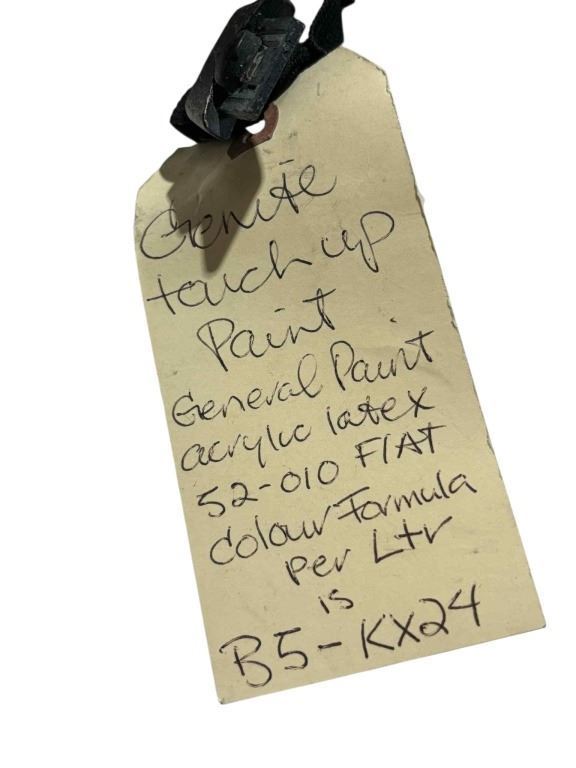 Genite
touch up
Paint
General Paint
acrylic latex
52-010 FlAT
Colour Formula
per Ltr
is
B5-KX24